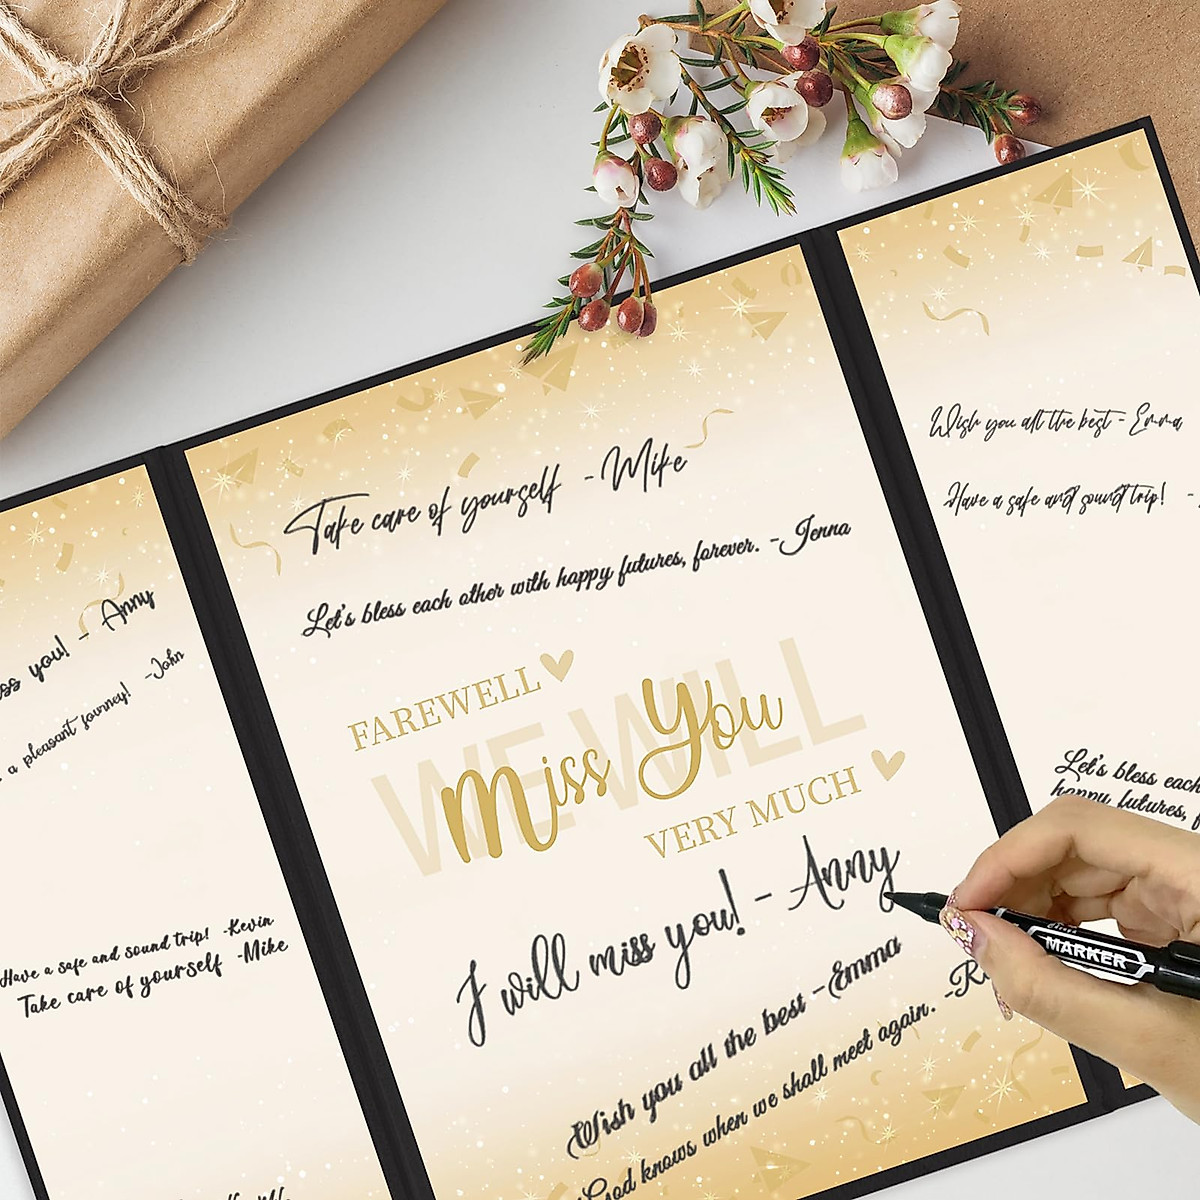 you! - Anny
a pleasant journey! -John
Have a safe and sound trip! -Kevin
Take care of yourself -Mike
Take care of yourself -Mike
Let's bless each other with happy futures, forever. -Jenna
FAREWELL
WE WILL
Miss You
VERY MUCH
I will miss you! - Anny
Wish you all the best -Emma
God knows when we shall meet again.
Wish you all the best - Emma
Have a safe and sound trip! -
Let's bless each
happy futures,
MARKER